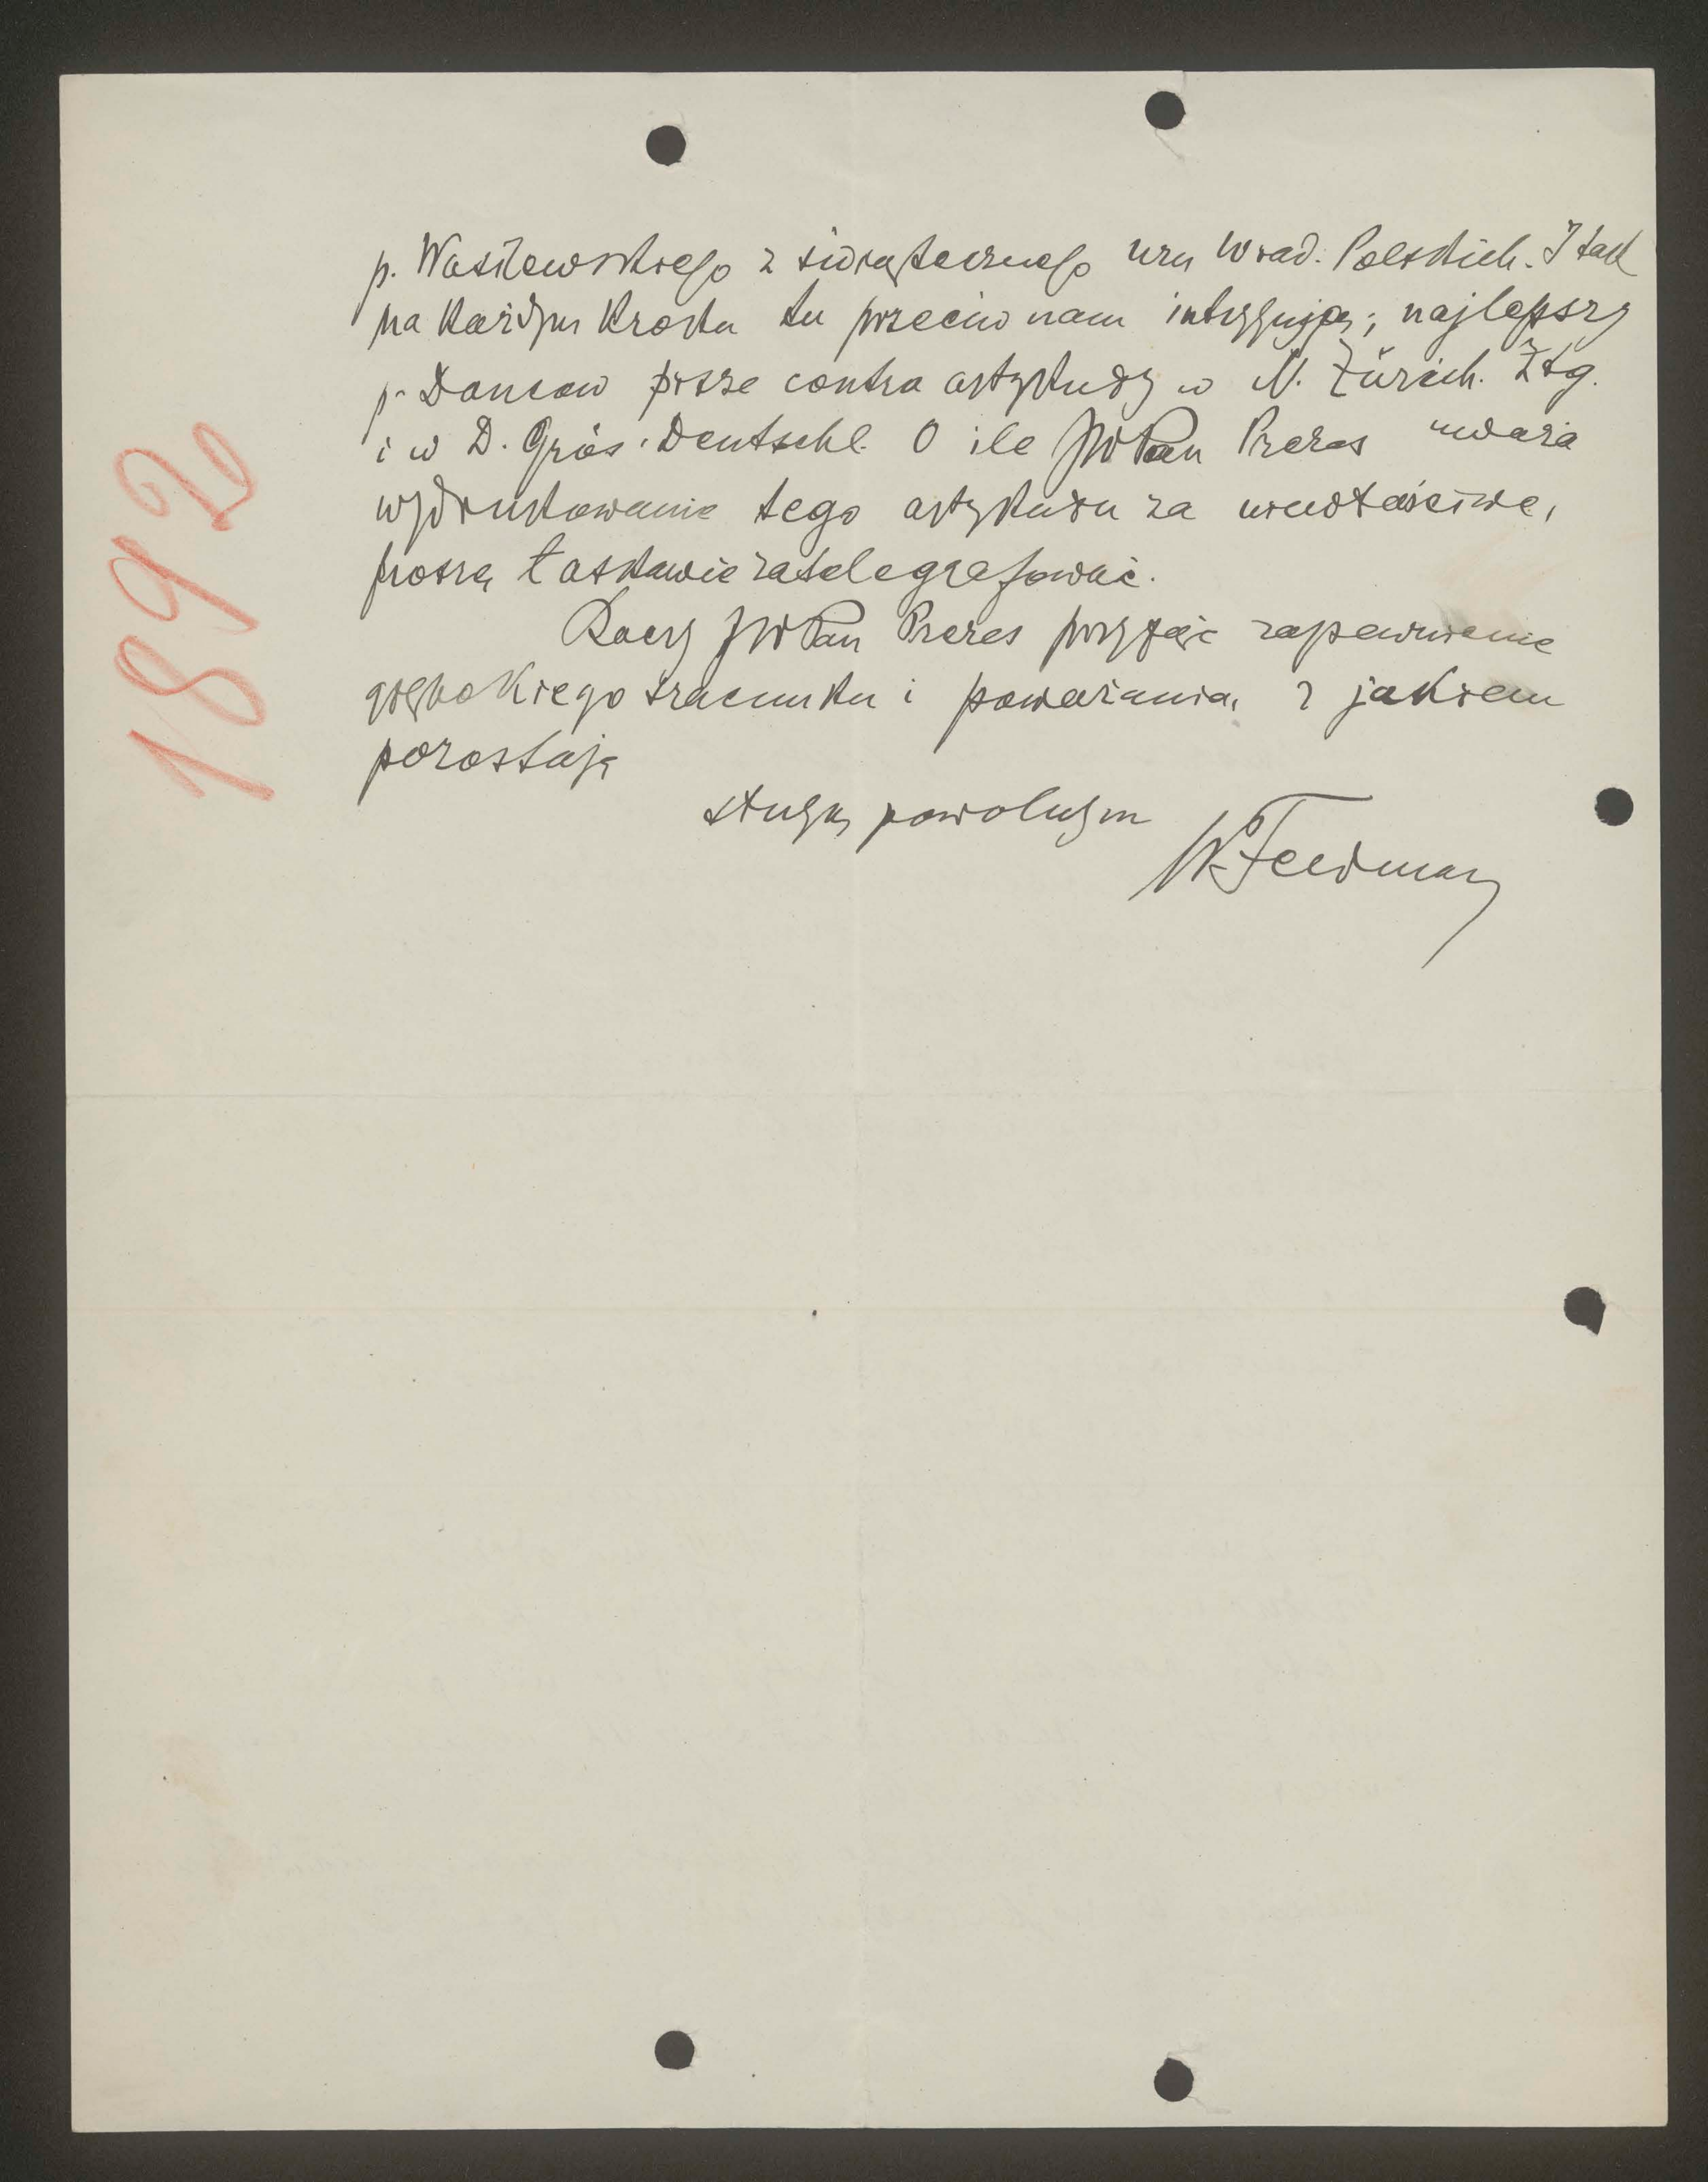 p. Wasilewskiego z świątecznego nru Wiad. Polskich. I tak
na każdym kroku tu przeciw nam intrygują; najlepszy
p. Dancow pisze contra artykuły w N. Zürich. Ztg.
i w D. Gros. Deutschl. O ile JWPan Prezes uważa
wydrukowanie tego artykułu za niewłaściwe,
proszę łaskawie zatelegrafować.
Raczy JWPan Prezes przyjąć zapewnienie
głębokiego szacunku i poważania, z jakiem
pozostaję
sługą powolnym
WFeldman
1892